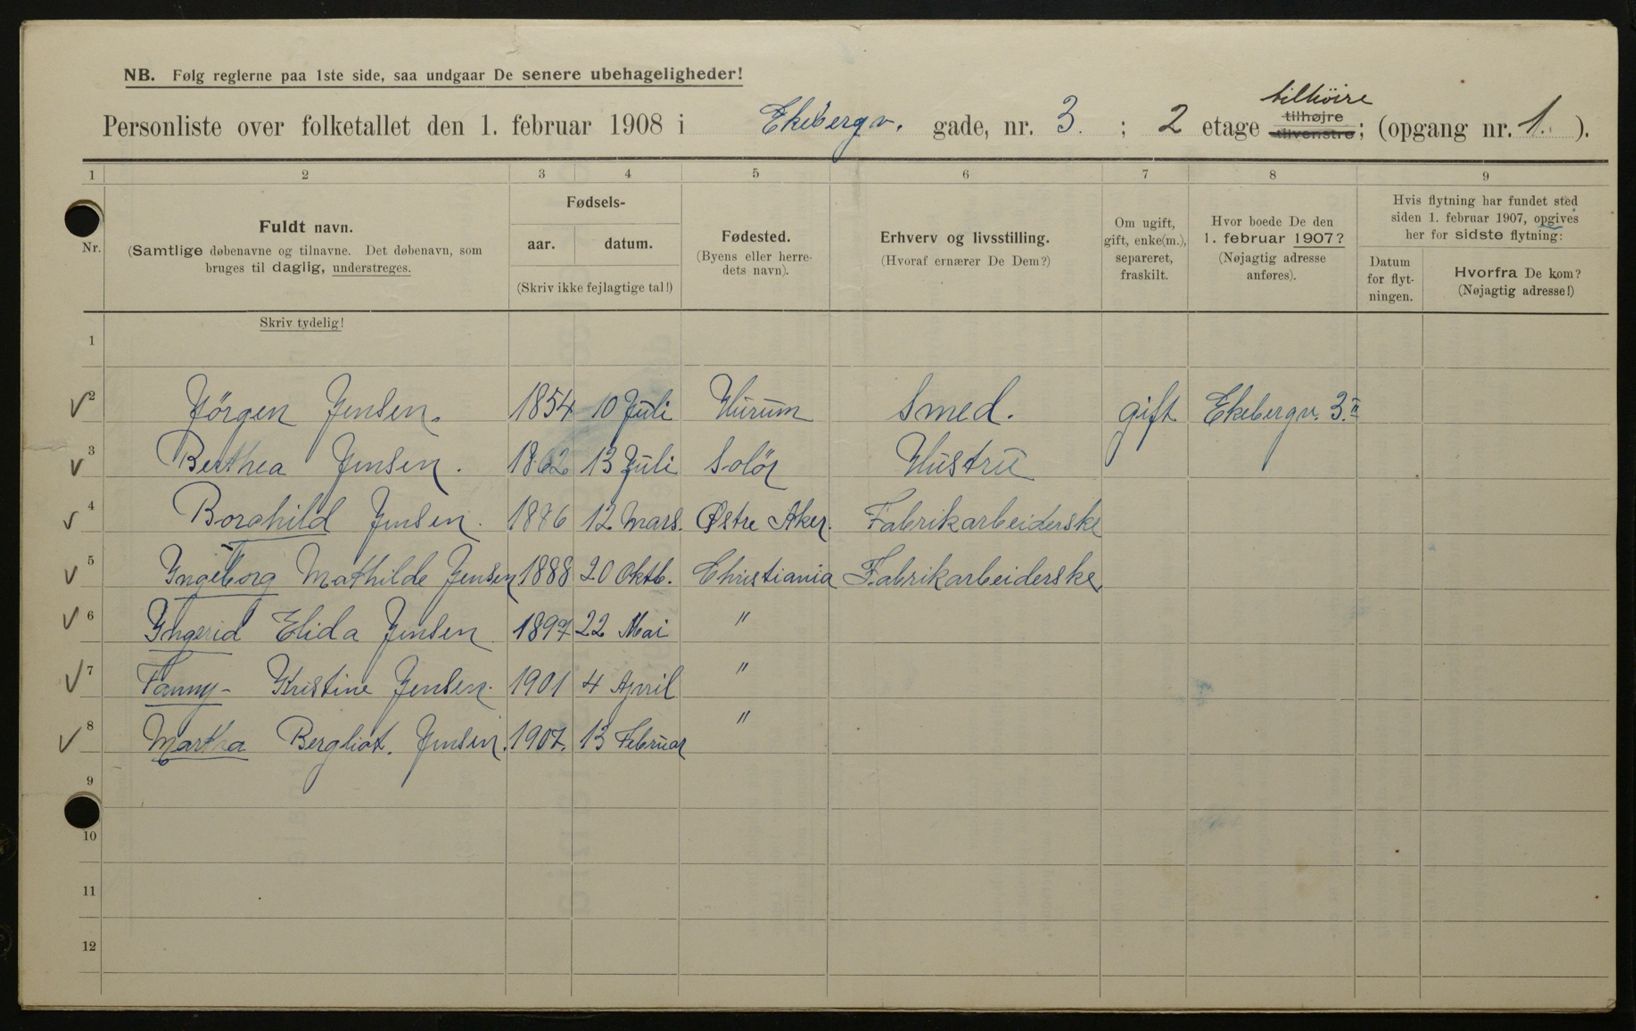 NB. Følg reglerne paa 1ste side, saa undgaar De senere ubehageligheder!
tilhöire
Personliste over folketallet den 1. februar 1908 i Ekebergv. gade, nr. 3. ; 2 etage tilhøjre tilvenstre; (opgang nr. 1. ).
1 2 3 4 5 6 7 8 9
Nr.
Fuldt navn.
(Samtlige døbenavne og tilnavne. Det døbenavn, som
bruges til daglig, understreges.
Skriv tydelig!
Fødsels-
aar. datum.
(Skriv ikke fejlagtige tal!)
Fødested.
(Byens eller herre-
dets navn).
Erhverv og livsstilling.
(Hvoraf ernærer De Dem?)
Om ugift,
gift, enke(m.),
separeret,
fraskilt.
Hvor boede De den
1. februar 1907?
(Nøjagtig adresse
anføres).
Hvis flytning har fundet sted
siden 1. februar 1907, opgives
her for sidste flytning:
Datum
for flyt-
ningen.
Hvorfra De kom?
(Nøjagtig adresse!)
1
2 Jörgen Jensen. 1854 10 Juli Hurum Smed. gift Ekebergv. 3.II
3 Berthea Jensen. 1862 13 Juli Solör Hustru
4 Borghild Jensen. 12 Mars. Østre Aker. Fabrikarbeiderske
5 Ingeborg Mathilde Jensen 1888 20 Oktb. Christiania Fabrikarbeiderske
6 Ingerid Elida Jensen. 1897 22 Mai "
7 Fanny- Kristine Jensen. 1901 4 April "
8 Martha Bergliot. Jensen. 1907. 13 Februar "
9
10
11
12